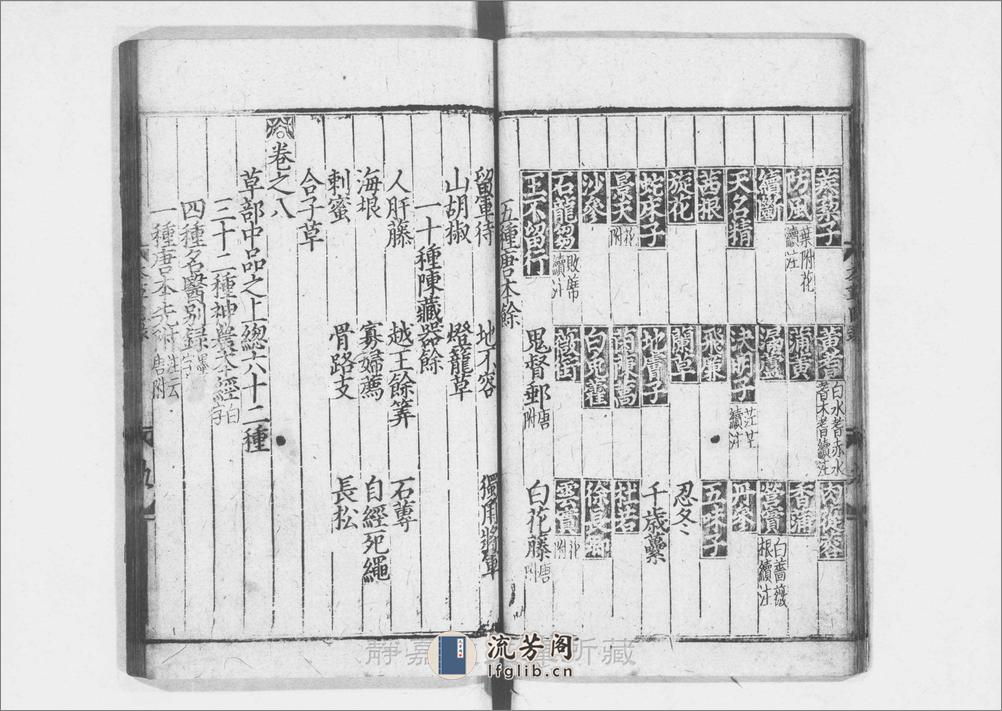 蒺藜子 黃耆白水耆赤水耆木耆續注 肉蓯蓉
防風葉附花續注 蒲黃 香蒲
續斷 漏盧 營實根續注白薔薇
天名精 決明子茳芏續注 丹參
茜根 飛廉 五味子
旋花 蘭草 忍冬
蛇床子 地膚子 千歲蘽
景天花附 茵陳蒿 杜若
沙參 白兔藿 徐長卿
石龍芻敗席續注 雲實
王不留行 鬼督郵唐附 白花藤唐附
五種唐本餘
留軍待 地不容 獨用將軍
山胡椒 燈籠草
一十種陳藏器餘
人肝藤 越王餘筭 石蓴
海根 寡婦薦 自經死繩
刺蜜 骨路支 長松
合子草
卷之八
草部中品之上總六十二種
三十二種神農本經白字
四種名醫別錄墨字
一種唐本先附注云唐附
静嘉 所藏
流芳阁
lfglib.cn